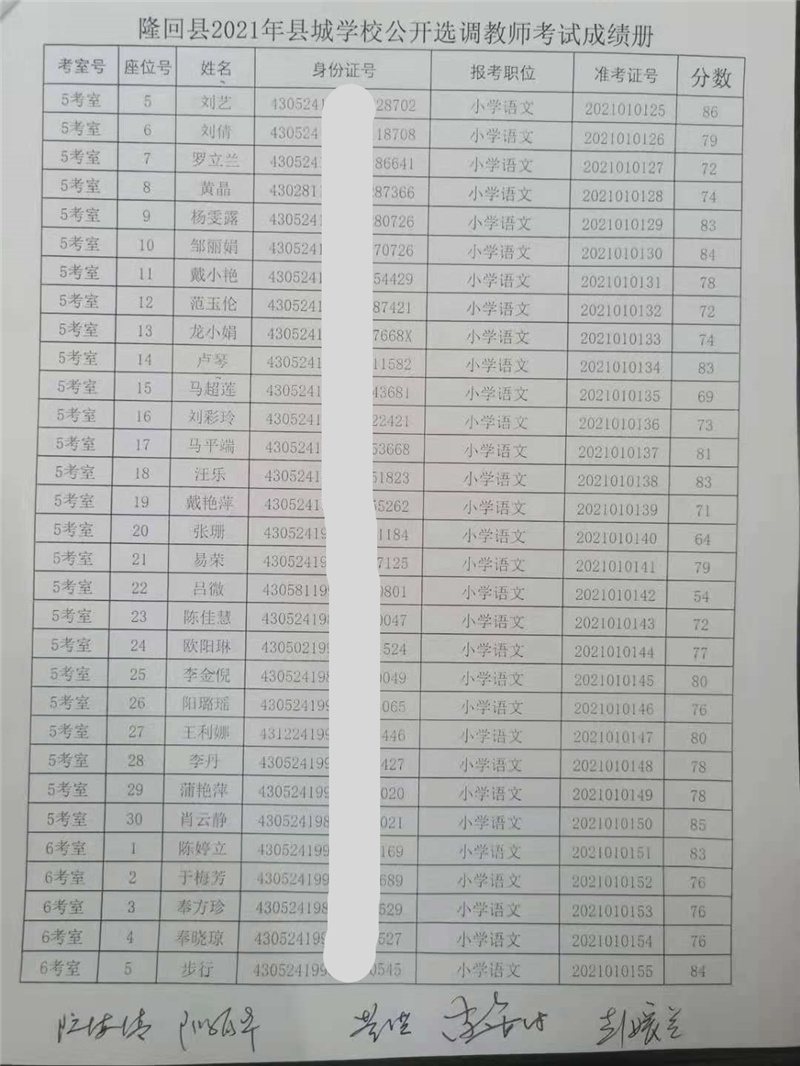 隆回县2021年县城学校公开选调教师考试成绩册
考室号 座位号 姓名 身份证号 报考职位 准考证号 分数
5考室 5 刘艺 4305241 28702 小学语文 2021010125 86
5考室 6 刘倩 430524 18708 小学语文 2021010126 79
5考室 7 罗立兰 430524 86641 小学语文 2021010127 72
5考室 8 黄晶 4302811 287366 小学语文 2021010128 74
5考室 9 杨雯露 4305241 280726 小学语文 2021010129 83
5考室 10 邹丽娟 4305241 70726 小学语文 2021010130 84
5考室 11 戴小艳 4305241 54429 小学语文 2021010131 78
5考室 12 范玉伦 4305241 87421 小学语文 2021010132 72
5考室 13 龙小娟 4305241 7668X 小学语文 2021010133 74
5考室 14 卢琴 4305241 11582 小学语文 2021010134 83
5考室 15 马超莲 4305241 43681 小学语文 2021010135 69
5考室 16 刘彩玲 4305241 22421 小学语文 2021010136 73
5考室 17 马平端 4305241 53668 小学语文 2021010137 81
5考室 18 汪乐 4305241 51823 小学语文 2021010138 83
5考室 19 戴艳萍 4305241 55262 小学语文 2021010139 71
5考室 20 张珊 43052419 1184 小学语文 2021010140 64
5考室 21 易荣 43052419 7125 小学语文 2021010141 79
5考室 22 吕微 430581199 0801 小学语文 2021010142 54
5考室 23 陈佳慧 430524198 0047 小学语文 2021010143 72
5考室 24 欧阳琳 430502199 1524 小学语文 2021010144 77
5考室 25 李金倪 430524198 0049 小学语文 2021010145 80
5考室 26 阳璐瑶 430524199 065 小学语文 2021010146 76
5考室 27 王利娜 431224199 446 小学语文 2021010147 80
5考室 28 李丹 430524199 427 小学语文 2021010148 78
5考室 29 蒲艳萍 430524199 020 小学语文 2021010149 78
5考室 30 肖云静 430524198 021 小学语文 2021010150 85
6考室 1 陈婷立 430524199 169 小学语文 2021010151 83
6考室 2 于梅芳 430524199 689 小学语文 2021010152 76
6考室 3 奉方珍 430524198 529 小学语文 2021010153 76
6考室 4 奉晓琼 430524199 527 小学语文 2021010154 76
6考室 5 步行 430524199 0545 小学语文 2021010155 84